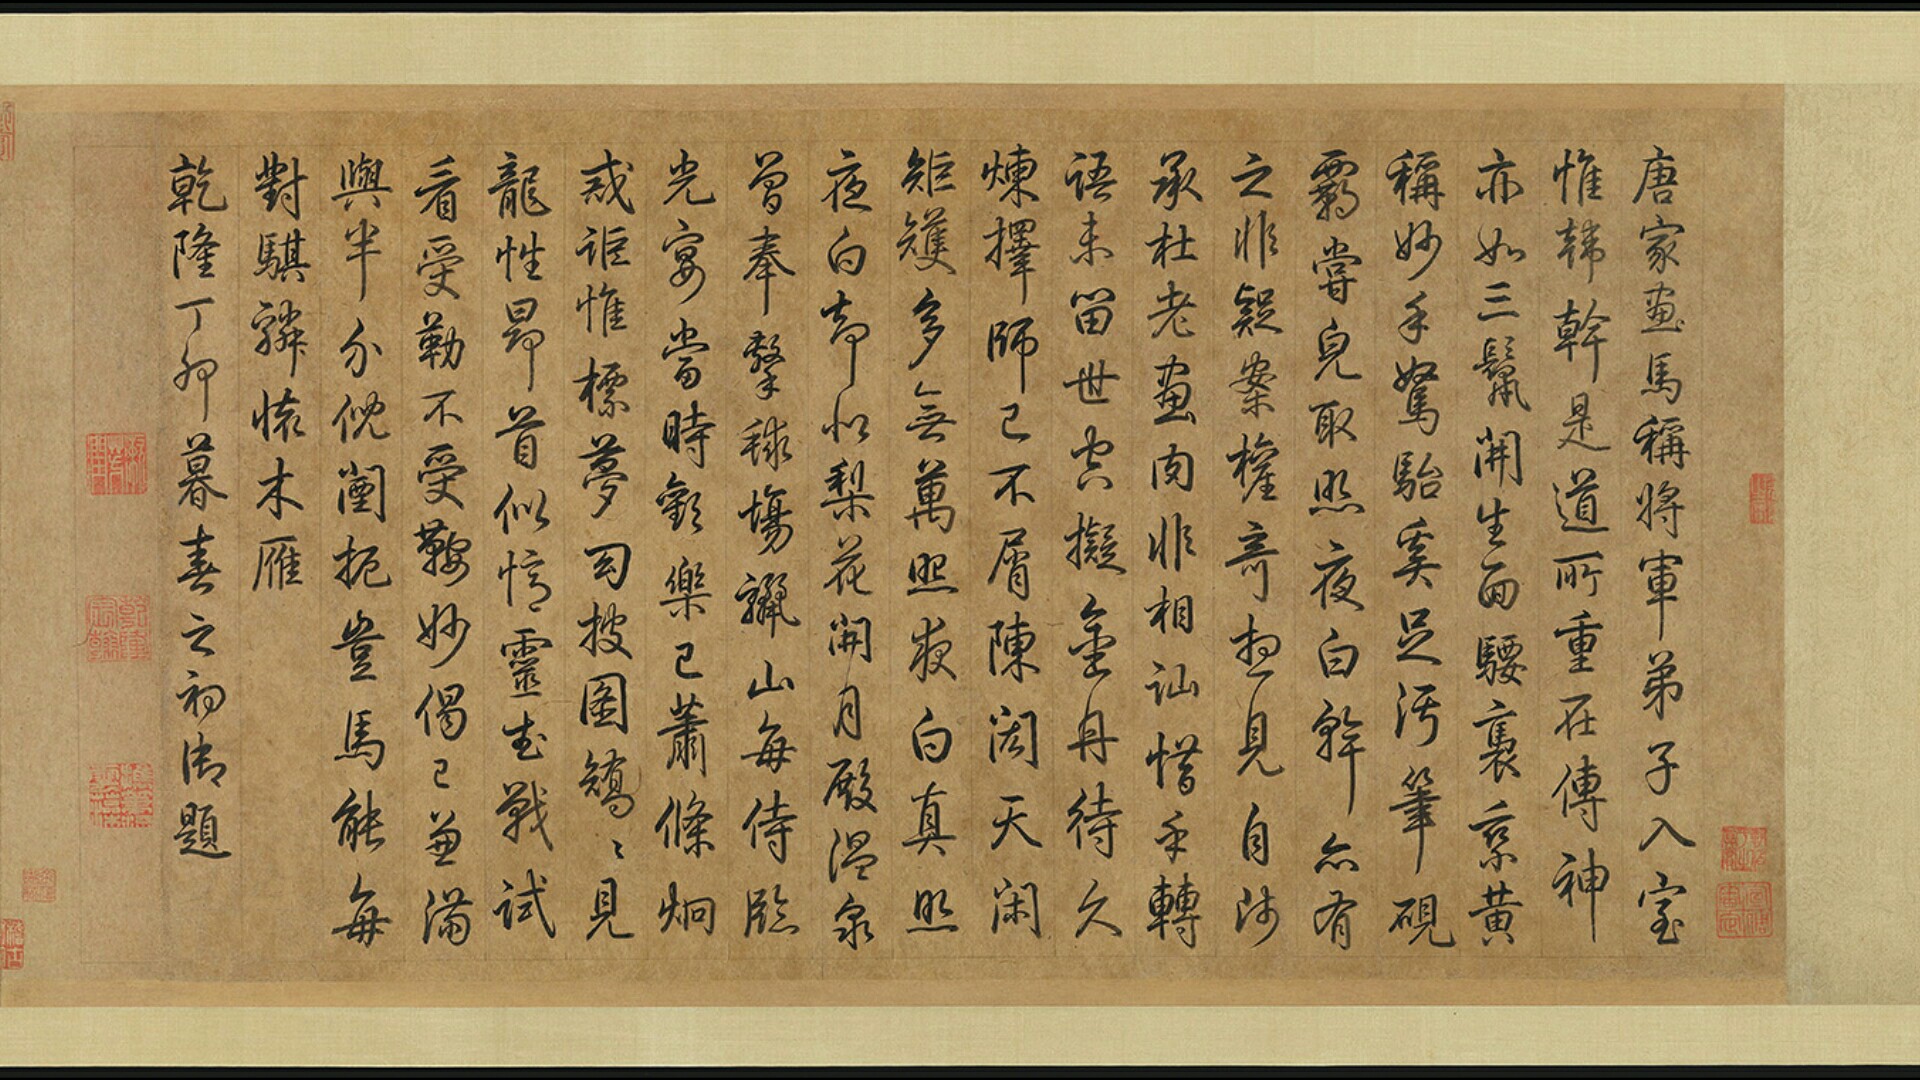 唐家畫馬稱將軍弟子入室
惟韓幹是道所重在傳神
亦如三鬣開生面騕褭乘黃
稱妙手駑駘奚足污筆硯
霸嘗皃取照夜白幹亦有
之非疑案權奇想見自師
承杜老畫肉非相訕惜手轉
語未留世空擬金丹待久
煉擇師已不屑陳閎天閑
矩矱多無萬照夜白真照
夜白却似梨花開月殿温泉
曾奉擊毬塲驪山每侍臨
光宴當時歡樂已蕭條炯
戒詎惟標夢幻披圖矯〻見
龍性昂首似憶靈武戰試
看受勒不受鞍妙偈已兼滿
與半分倪闉扼豈馬能每
對騏驎懷木雁
乾隆丁卯暮春之初御題